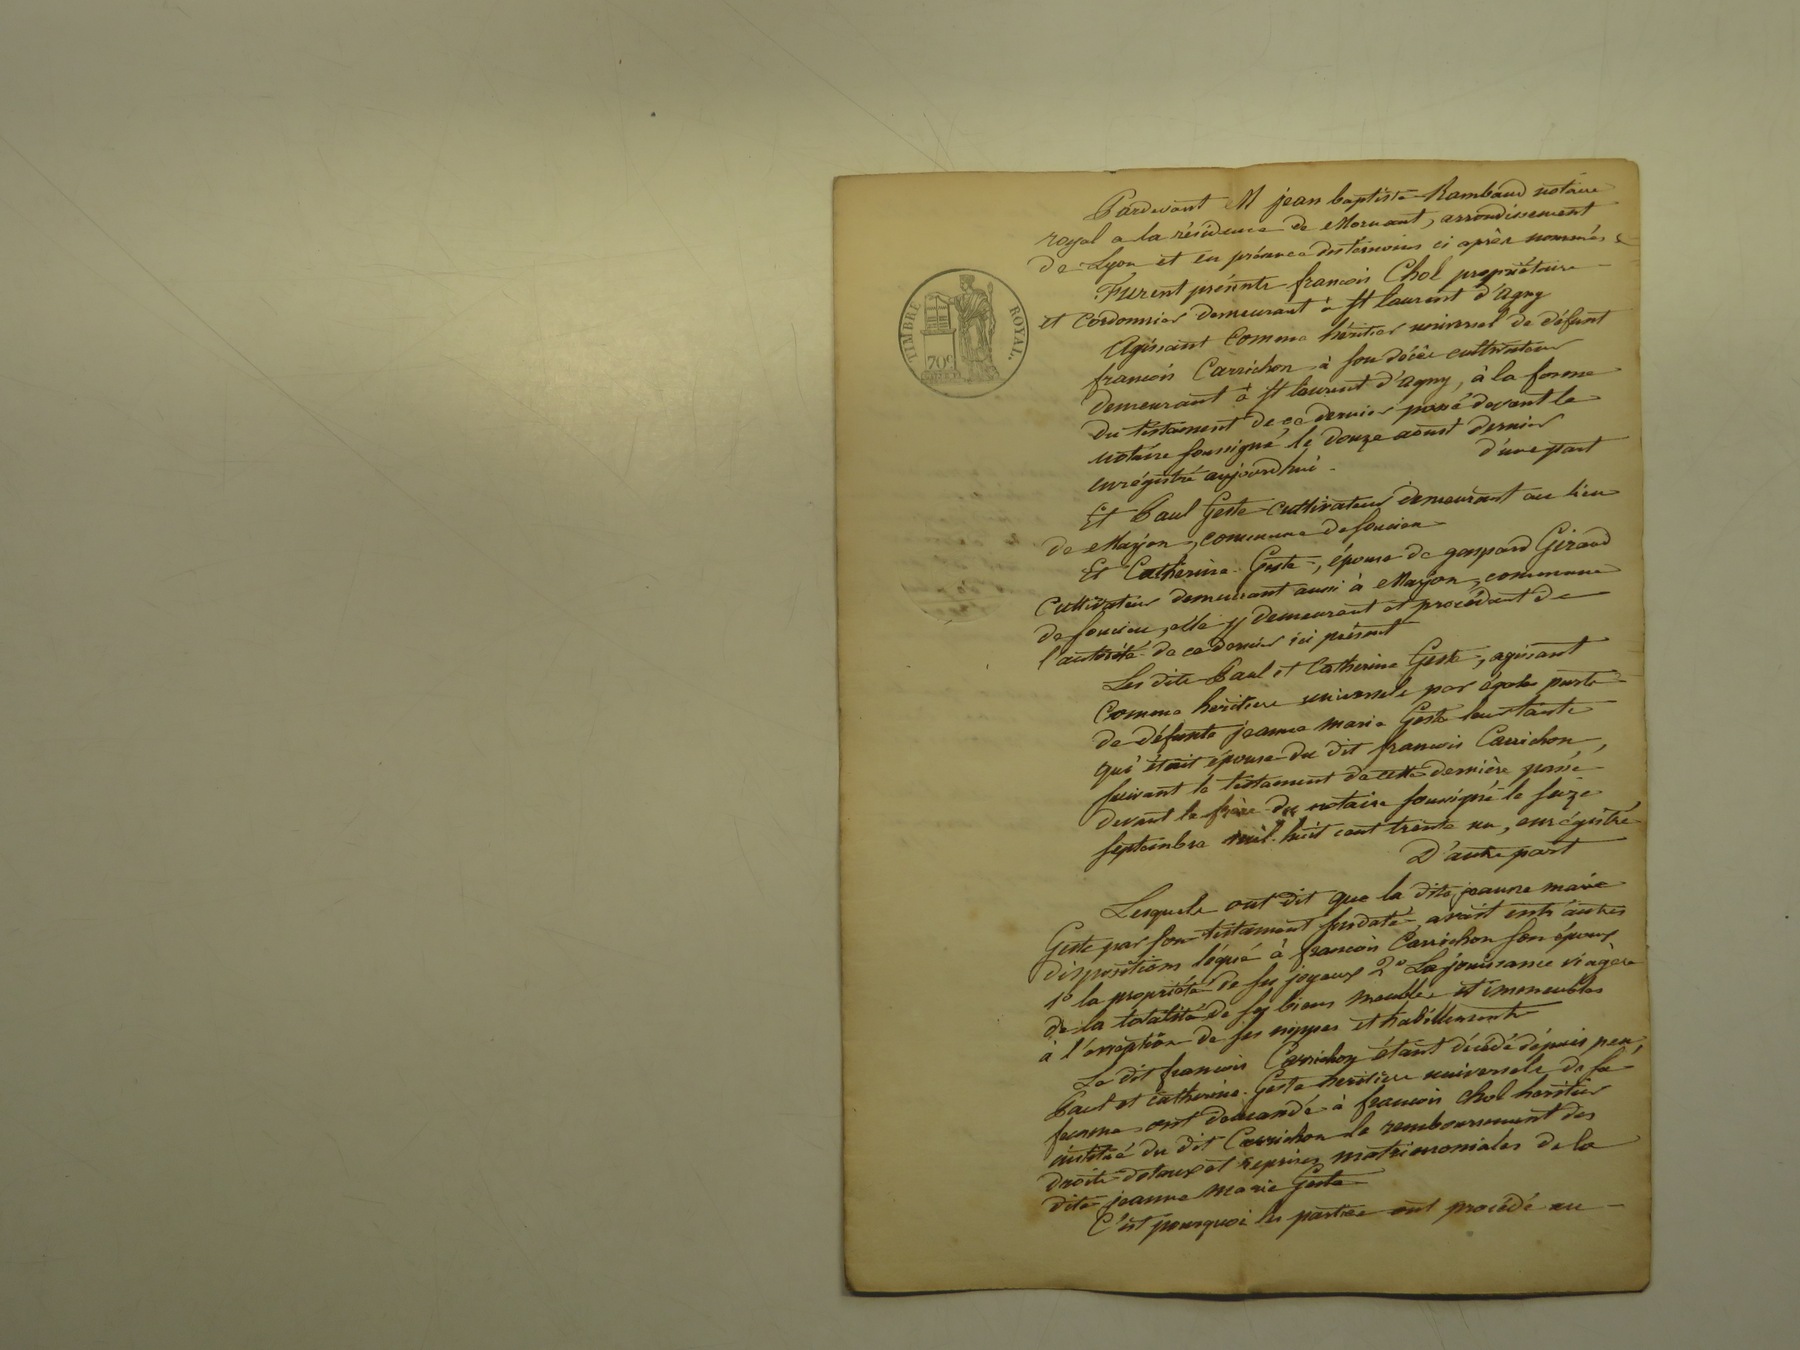 TIMBRE ROYAL.
70c
Pardevant M jean baptiste Rambaud notaire
royal a la résidence de Mornant, arrondissement
de Lyon et en présence des temoins ci après nommés &
Furent présents francois Chol propriétaire
et Cordonnier demeurant à St laurent d'agny
Agissant comme héritier universel de défunt
francois Carrichon à son décès cultivateur
demeurant à St laurent d'agny, à la forme
du testament de ce dernier passé devant le
notaire soussigné le douze aoust dernier
enrégistré aujourd'hui. d'une part
Et Paul Geste cultivateur demeurant au lieu
de Marjon, commune de soucieu
Et Catherine Geste, épouse de gaspard Giraud
Cultivateur demeurant aussi à Marjon, commune
de soucieu, elle y demeurant et procédant de
l'autorité de ce dernier ici présent
Les dits Paul et Catherine Geste, agissant
Comme heritiers universels par égale parts
de défunte jeanne marie Geste leur tante
qui était épouse du dit francois Carrichon,
suivant le testament de cette dernière passé
devant le frère du notaire soussigné le seize
septembre mil huit cent trente un, enrégistré
D'autre part
Lesquels ont dit que la dite jeanne marie
Geste par son testament susdaté, avait entr'autres
dispositions légué à francois Carrichon son époux
1º la propriété de ses joyaux 2º La jouissance viagère
de la totalité de ses biens meubles et immeubles
à l'exception de ses nippes et habillements
Le dit francois Carrichon étant décédé depuis peu,
Paul et Catherine Geste heritiers universels de sa
femme ont demandé à francois Chol heritier
institué du dit Carrichon le remboursement des
droits dotaux et reprises matrimoniales de la
dite jeanne marie Geste
C'est pourquoi les parties ont procédé au